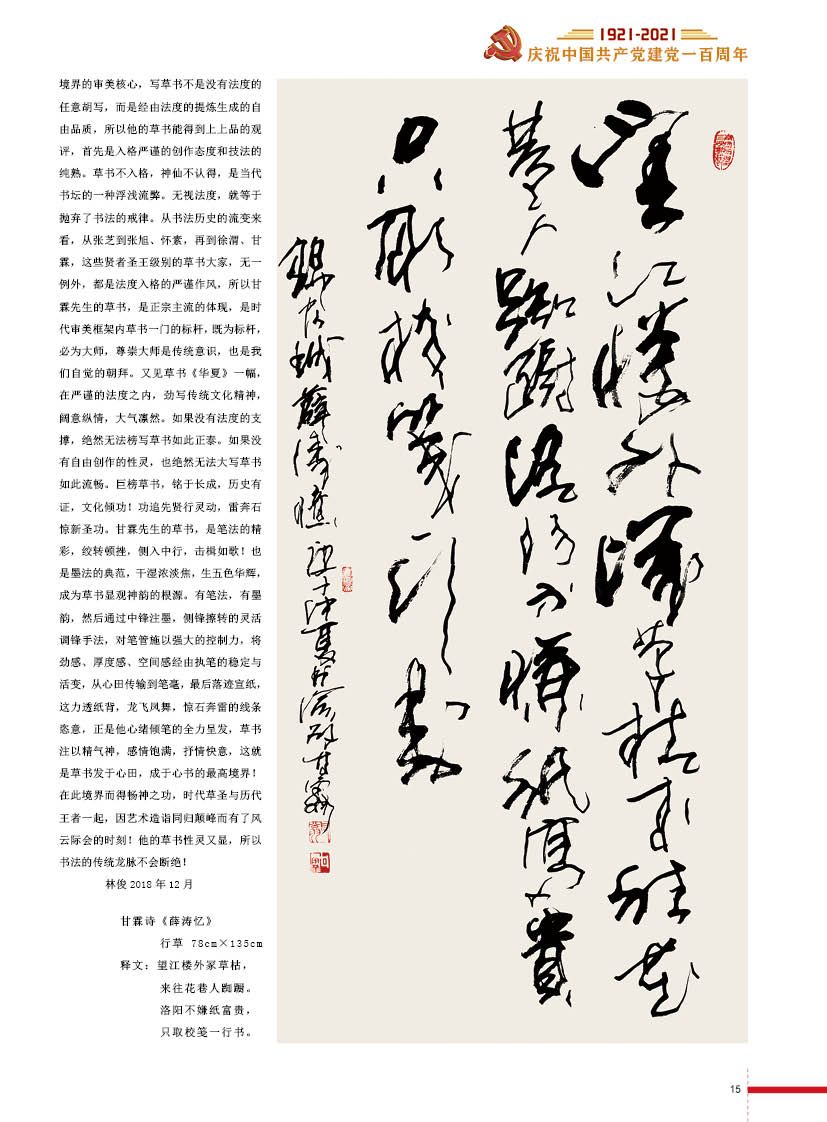 1921-2021
庆祝中国共产党建党一百周年
境界的审美核心，写草书不是没有法度的
任意胡写，而是经由法度的提炼生成的自
由品质，所以他的草书能得到上上品的观
评，首先是入格严谨的创作态度和技法的
纯熟。草书不入格，神仙不认得，是当代
书坛的一种浮浅流弊。无视法度，就等于
抛弃了书法的戒律。从书法历史的流变来
看，从张芝到张旭、怀素，再到徐渭、甘
霖，这些贤者圣王级别的草书大家，无一
例外，都是法度入格的严谨作风，所以甘
霖先生的草书，是正宗主流的体现，是时
代审美框架内草书一门的标杆，既为标杆，
必为大师，尊崇大师是传统意识，也是我
们自觉的朝拜。又见草书《华夏》一幅，
在严谨的法度之内，劲写传统文化精神，
阔意纵情，大气凛然。如果没有法度的支
撑，绝然无法榜写草书如此正泰。如果没
有自由创作的性灵，也绝然无法大写草书
如此流畅。巨榜草书，铭于长成，历史有
证，文化倾功！功追先贤行灵动，雷奔石
惊新圣功。甘霖先生的草书，是笔法的精
彩，绞转顿挫，侧入中行，击楫如歌！也
是墨法的典范，干湿浓淡焦，生五色华辉，
成为草书显观神韵的根源。有笔法，有墨
韵，然后通过中锋注墨，侧锋擦转的灵活
调锋手法，对笔管施以强大的控制力，将
劲感、厚度感、空间感经由执笔的稳定与
活变，从心田传输到笔毫，最后落迹宣纸，
这力透纸背，龙飞凤舞，惊石奔雷的线条
恣意，正是他心绪倾笔的全力呈发，草书
注以精气神，感情饱满，抒情快意，这就
是草书发于心田，成于心书的最高境界！
在此境界而得畅神之功，时代草圣与历代
王者一起，因艺术造诣同归颠峰而有了风
云际会的时刻！他的草书性灵又显，所以
书法的传统龙脉不会断绝！
林俊 2018 年 12 月
甘霖诗《薛涛忆》
行草 78cm×135cm
释文：望江楼外冢草枯，
来往花巷人踟蹰。
洛阳不嫌纸富贵，
只取校笺一行书。
15